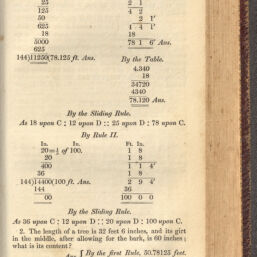 25 2 1
125 4 2
50 2 1'
625 4 4 1'
18 18
5000 78 1 6' Ans.
625
144)11250(78.125 ft. Ans. By the Table.
4.340
18
34720
4340
78.120 Ans.
By the Sliding Rule.
As 18 upon C : 12 upon D :: 25 upon D : 78 upon C.
By Rule II.
In. In. Ft. In.
20=⅕ of 100. 1 8
20 1 8
400 1 1 4'
36 1 8
144)14400(100 ft. Ans. 2 9 4'
144 36
00 100 0 0
By the Sliding Rule.
As 36 upon C : 12 upon D :: 20 upon D : 100 upon C.
2. The length of a tree is 32 feet 6 inches, and its girt
in the middle, after allowing for the bark, is 60 inches;
what is its content?
Ans. { By the first Rule, 50.78125 feet.